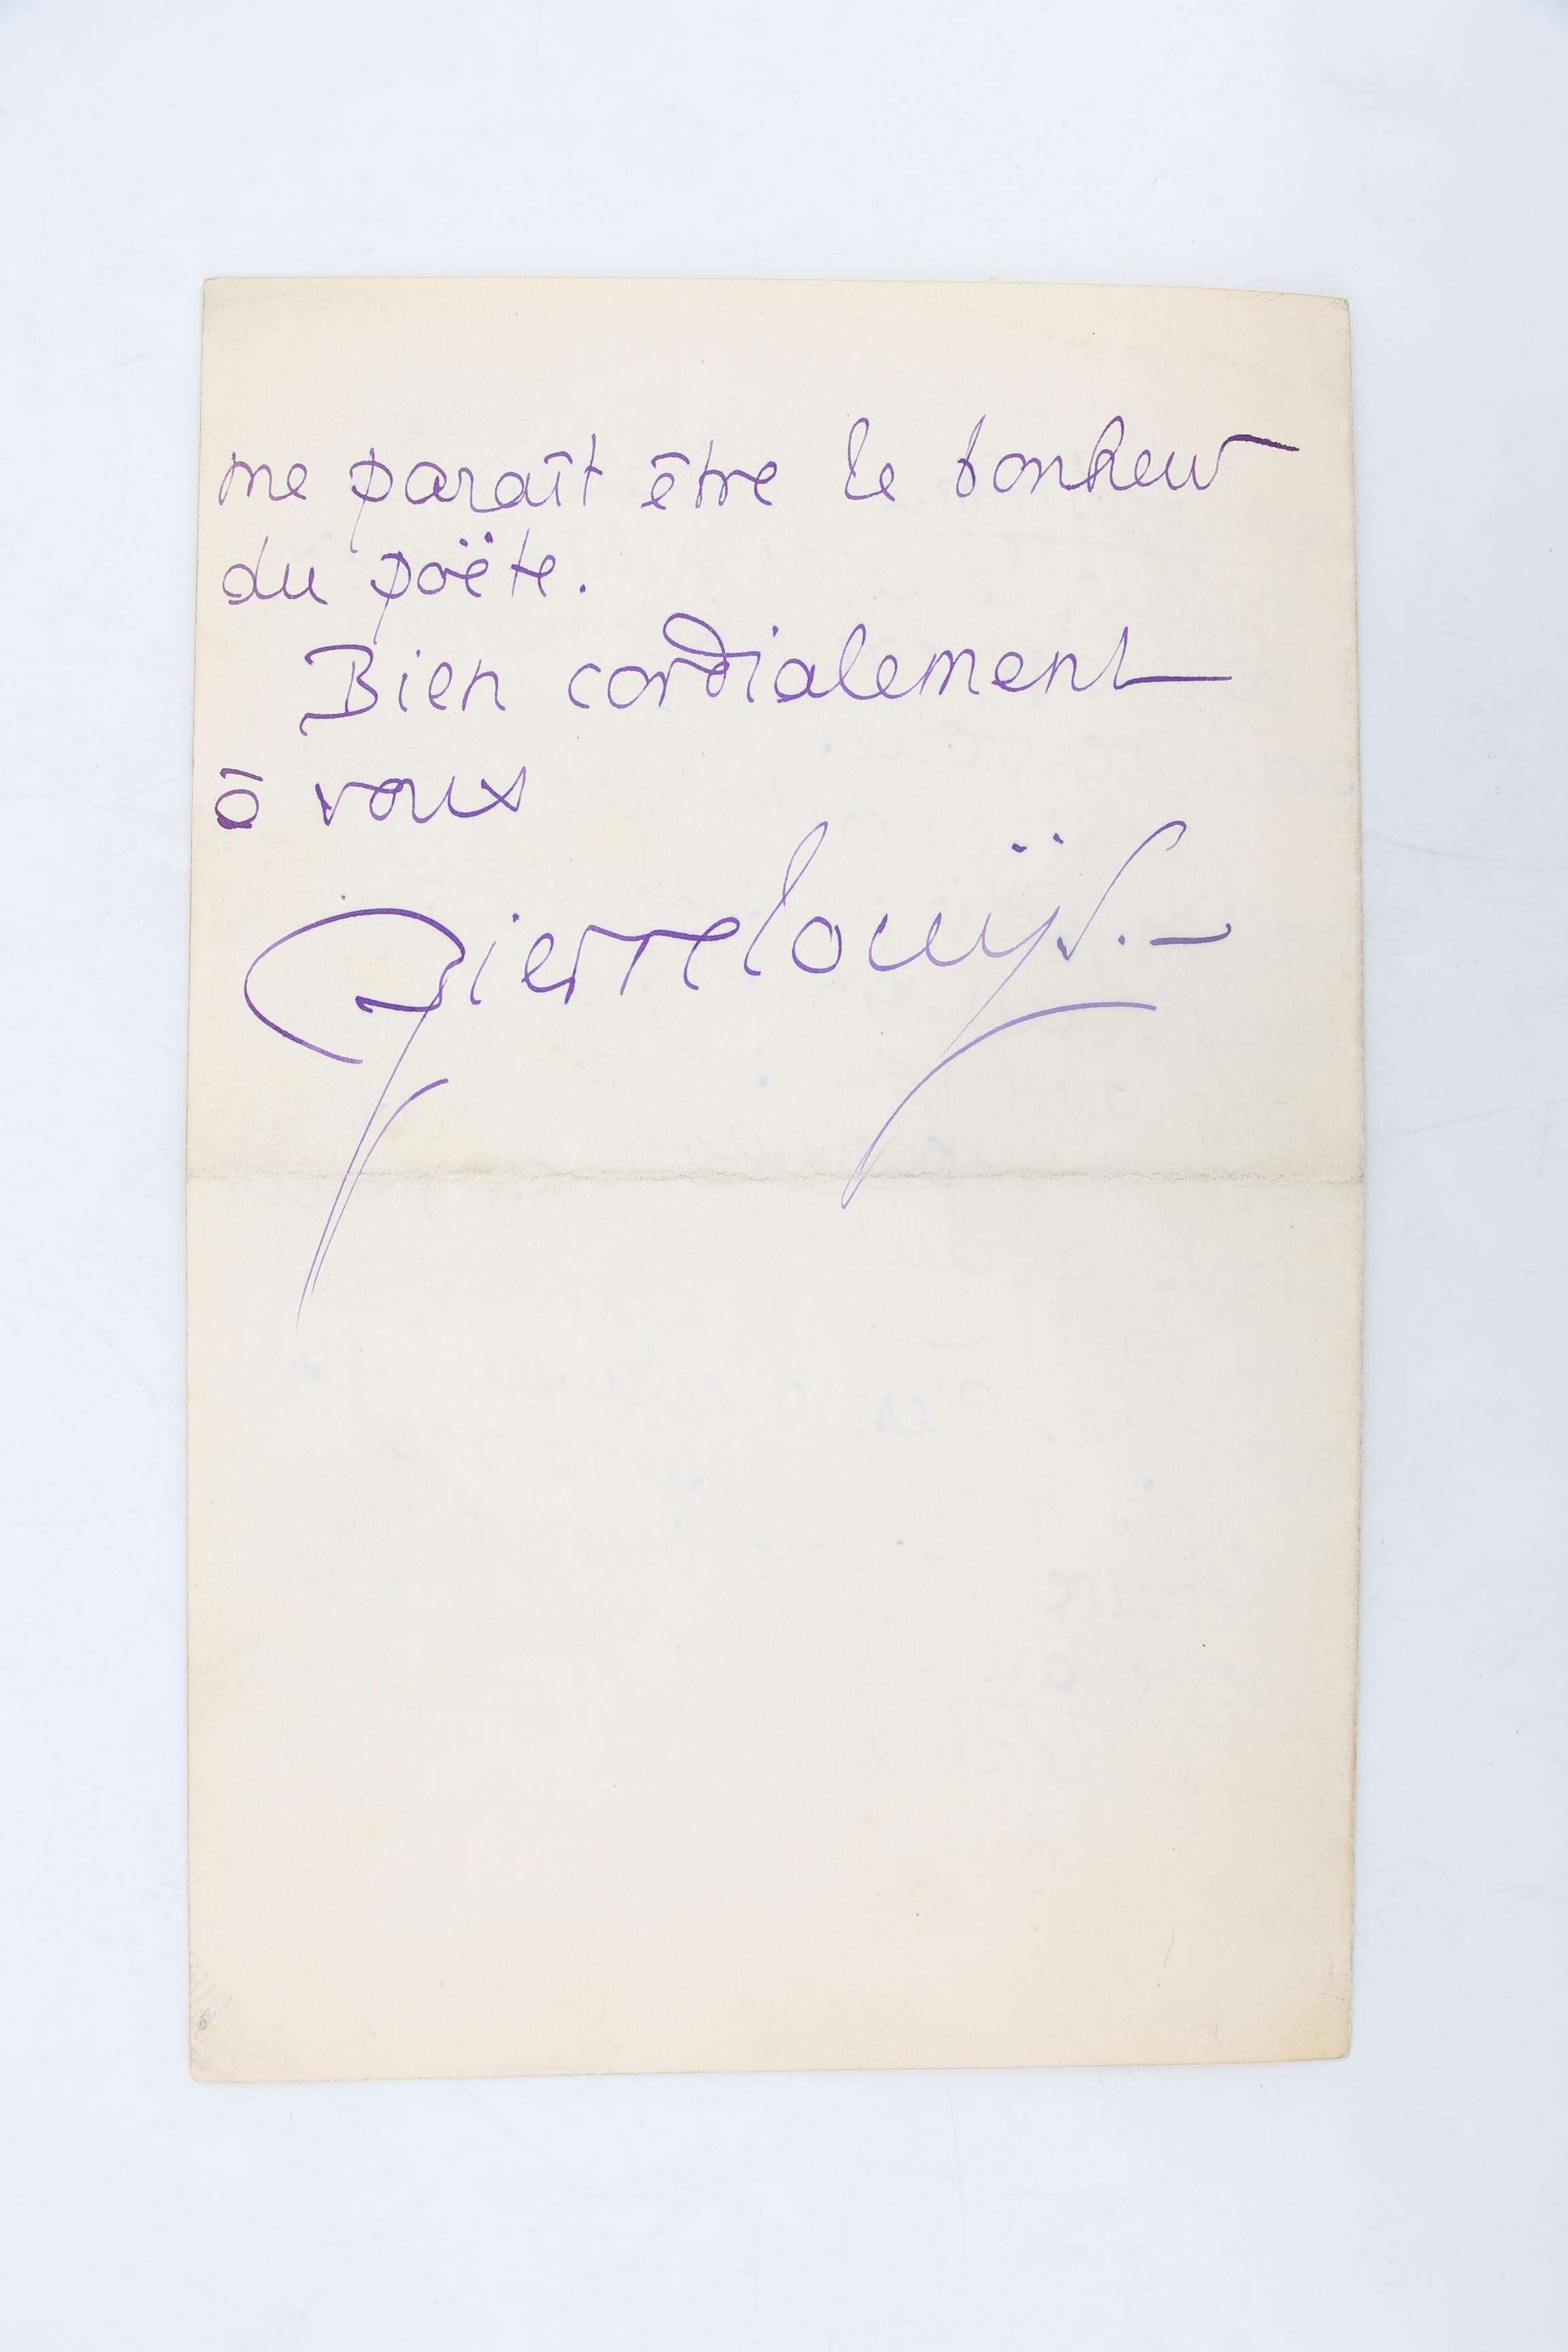 me paraît être le bonheur
du poëte.
Bien cordialement
à vous
Pierre Louÿs. —